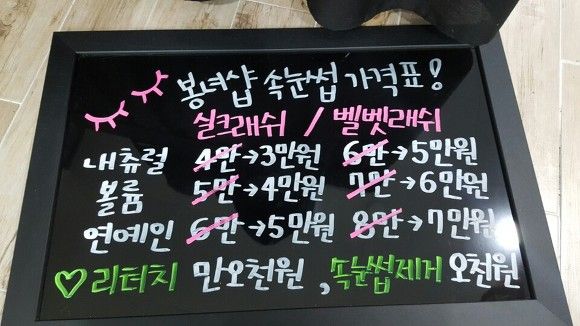 봉녀샵 속눈썹 가격표!
실크래쉬 / 벨벳래쉬
내츄럴 4만→3만원 6만→5만원
볼륨 5만→4만원 7만→6만원
연예인 6만→5만원 8만→7만원
♡리터치 만오천원, 속눈썹제거 오천원